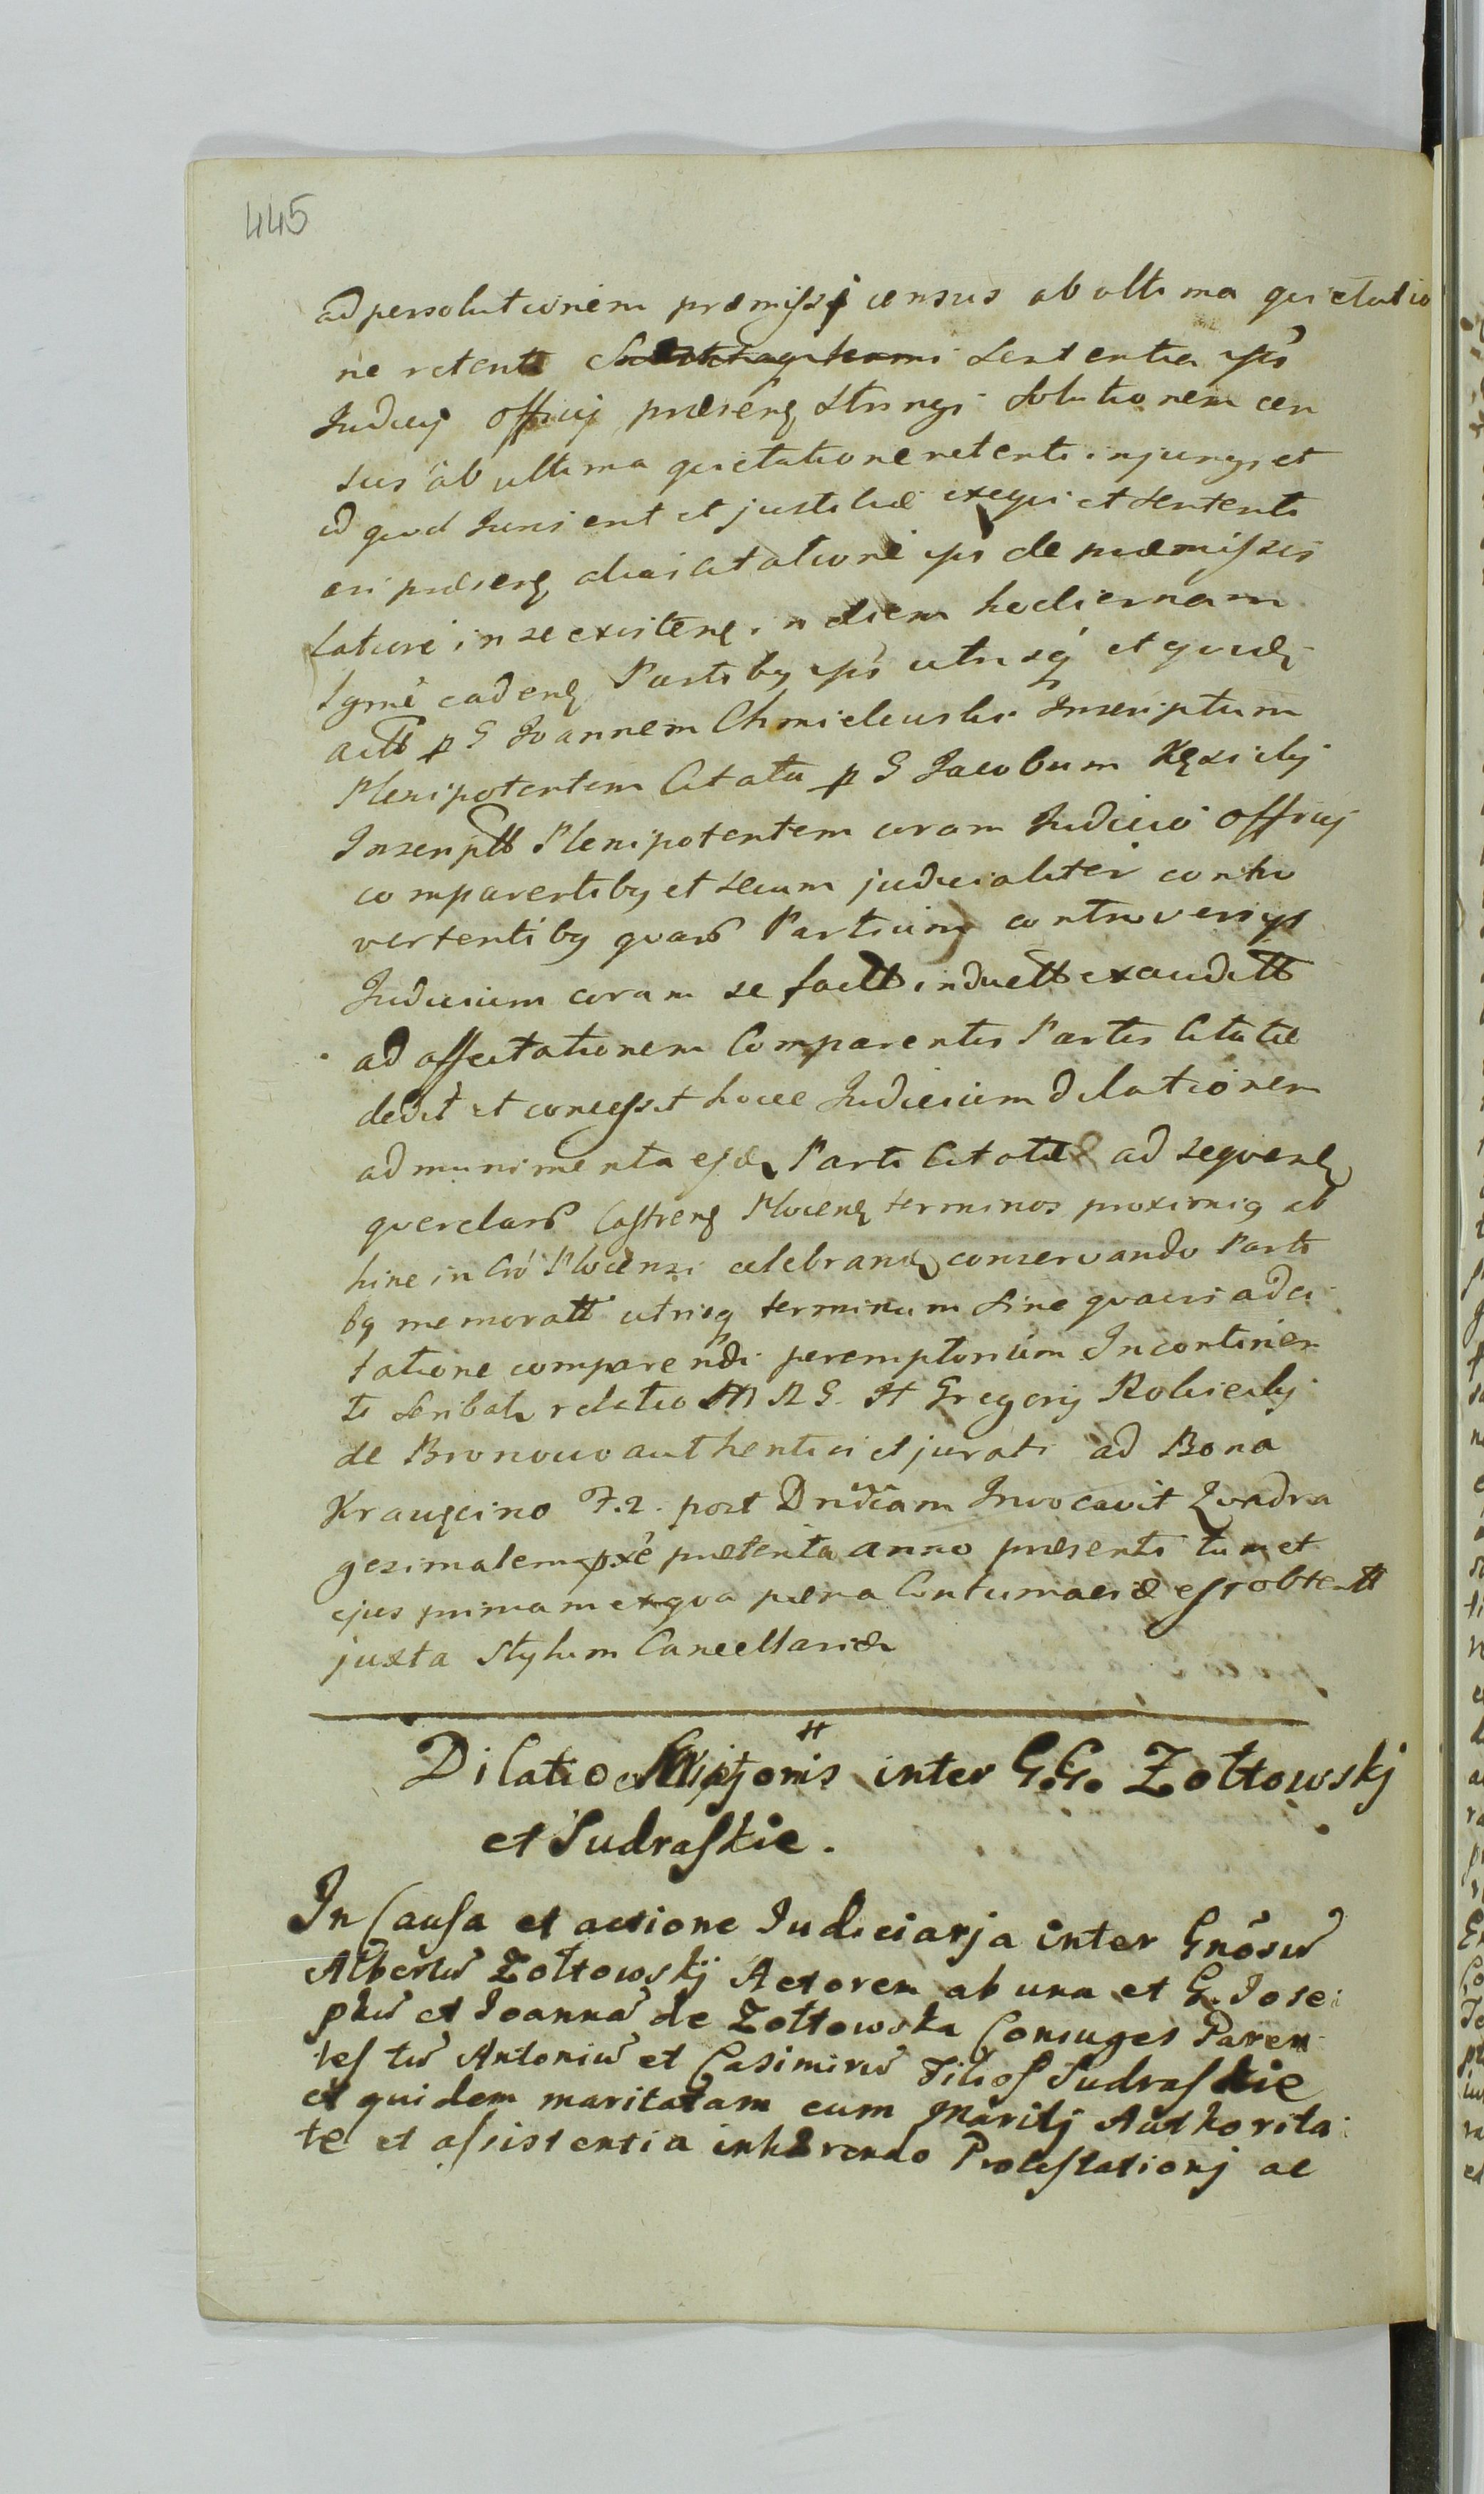 445
ad persolutionem præmissi census ab ultima quietatio
ne retenti Sententia ipsi
Judicij Officij præsenȩ stringi Solutionem cen
sus ab ultima quietatione retenti injungi et
id quod Juris erit et justitiæ exequi et sententi
ari præsenȩ alias citatione ipsi de præmissis
laturi in se existenȩ in diem hodiernam
tgmi cadenȩ Partibꝫ ipsi utrisqꝫ et quidȩ
actt p G Joannem Chmielewski Inscriptum
Plenipotentem Citata p G Jacobum Kęsicky
Inscriptt Plenipotentem coram Judicio Officij
comparentibꝫ et secum judicialiter contro
vertentibꝫ quaru Partium controversijs
Judicium coram se factt inductt exauditt
ad affectationem Comparentis Partis Citatæ
dedit et concessit hocce Judicium dilationem
ad munimenta ejdȩ Parti Citatæ ad sequenȩ
querelaru Castrenȩ Plocenȩ terminos proximiȩ ab
hinc in Cro Plocensi celebranȩ conservando Parti
bꝫ memoratt utrisqꝫ terminum sine quavis adci
tatione comparendi peremptorium Incontinen
ti scribatr relatio M R G H Gregorij Robiecky
de Bronowo authentici et jurati ad Bona
Krauȩcino F. 2. post Dnicam Invocavit Quadra
gesimalem pxe præterita anno præsenti tum et
ejus primam ex qua pæna Contumaciæ est obtentt
juxta Stylum Cancellariæ
Dilatio inter G.G. Zołtowskj
et Sudraskie.
In Causa et actione Judiciarja inter Gnosu
Albertu Zołtowskij Actorem ab una et G. Jose:
phu et Joanna de Zołtowska Coniuges Paren
tes tu Antoniu et Casimiru Filios Sudraskie
et quidem maritatam cum Maritj Authorita:
te et assistentia inhærendo Protestationj ac